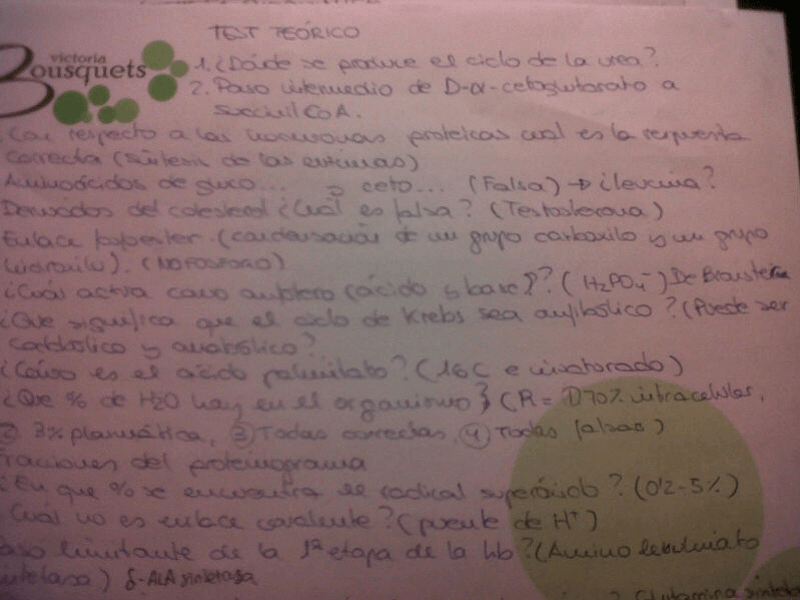 TEST TEÓRICO
victoria
Bousquets
1. ¿Dónde se produce el ciclo de la urea?
2. Paso intermedio de D-α-cetoglutarato a
succinil CoA.
Con respecto a las hormonas proteicas cual es la respuesta
correcta (síntesis de las enzimas)
Aminoácidos de gluco... ceto... (Falsa) → ¿leucina?
Derivados del colesterol ¿Cuál es falsa? (Testosterona)
Enlace (condensación de un grupo carboxilo y un grupo
hidroxilo). (NO FOSFORO)
¿Cuál actua como anfótero (ácido y base)? (H2PO4-) De
¿Que significa que el ciclo de Krebs sea anfibólico? (Puede ser
catabólico y anabólico?
¿Cómo es el ácido palmitato? (16C e insaturado)
¿Que % de H2O hay en el organismo? (R= ① 70% intracelular,
② 3% plasmática, ③ Todas correctas ④ Todas falsas)
Fracciones del proteinograma
¿En que % se encuentra el radical superóxido? (0'2-5%)
Cuál no es enlace covalente? (puente de H+)
limitante de la 1ª etapa de la Hb? (Amino levulinato
sintetasa) δ-ALA sintetasa
Glutamina